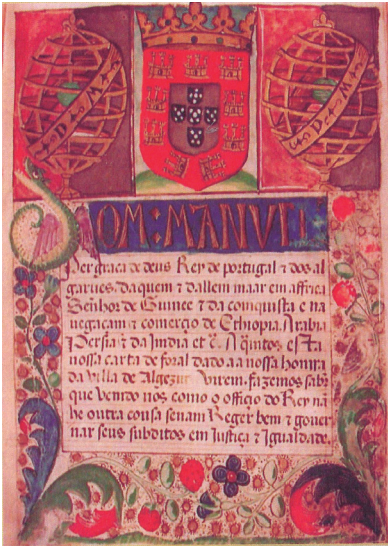 DOM: MANVEL
Per graça de deus Rey de portugal ⁊ dos al
garues. daquem ⁊ dallem maar em affrica
Senhor de Guinee ⁊ da conquista e na
uegacam ⁊ comercio de Ethiopia, Arabia
Persia ⁊ da India et c̃. A q̃ntos esta
nossa carta de foral dado aa nossa
da villa de Algezur virem. fazemos sab̃
que vendo nos como o officio do Rey nã
he outra cousa senam Reger bem ⁊ gouer
nar seus subditos em Justiça ⁊ Igualdade.